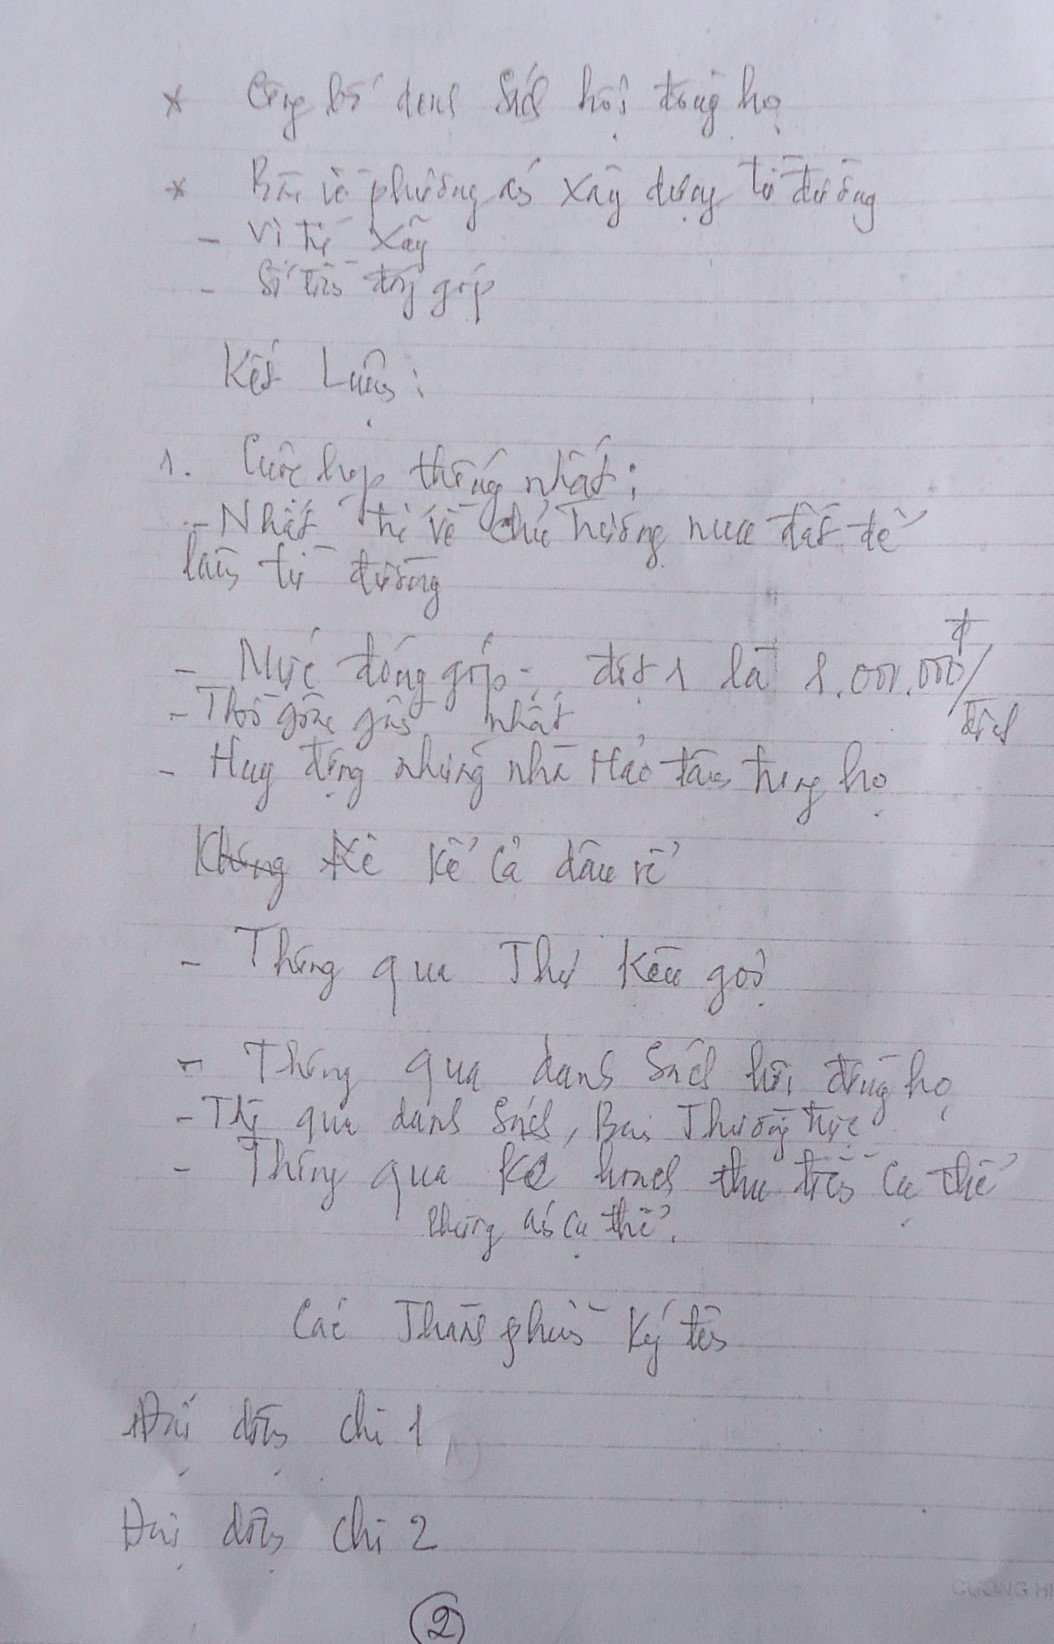 * Công bố danh sách hội đồng họ
* Bàn về phương án xây dựng từ đường
- Vị trí xây
- Số tiền đóng góp
Kết Luận:
1. Cuộc họp thống nhất:
- Nhất trí về chủ trương mua đất để
làm từ đường
- Mức đóng góp: đợt 1 là 1.000.000đ/
đinh
- Thời gian gần nhất
- Huy động những nhà Hảo tâm trong họ
Kể cả dâu rể
- Thông qua Thư Kêu gọi
- Thông qua danh sách hội đồng họ
- Thông qua danh sách, Ban Thường trực
- Thông qua Kế hoạch thu tiền cụ thể
phương án cụ thể.
Các Thành phần Ký tên
Đại diện chi 1
Đại diện chi 2
2